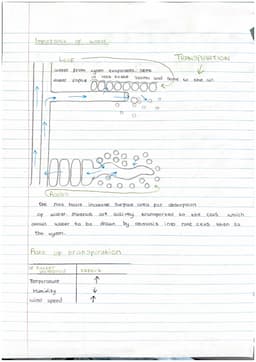 Importance of water
LEAF
TRANSPIRATION
water from xylem evaporates into
water vapour
ROOTS
the root hairs increase surface area for absorption
of water. Minerals are actively transported to the cells which
causes water to be drawn by osmosis into root cells then to
the xylem.
Rate of transpiration
Temperature ↑
Humidity ↓
Wind speed ↑